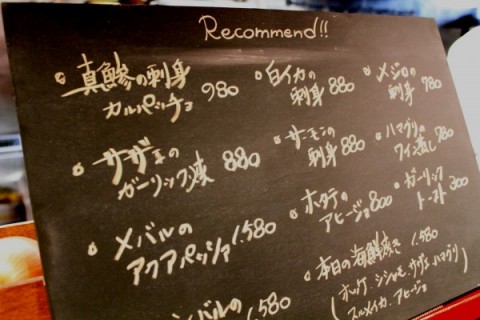 Recommend!!
真鯵の刺身
カルパッチョ 980
白イカの
刺身 880
メジロの
刺身 980
サザエの
ガーリック焼 880
サーモンの
刺身 880
ハマグリの
ワイン蒸し 780
メバルの
アクアパッツァ 1,580
ホタテの
アヒージョ 800
ガーリック
トースト 300
バルの
1,580
本日の海鮮焼き 1,580
(ホッケ、シシャモ、サザエ、ハマグリ
スルメイカ、アヒージョ)